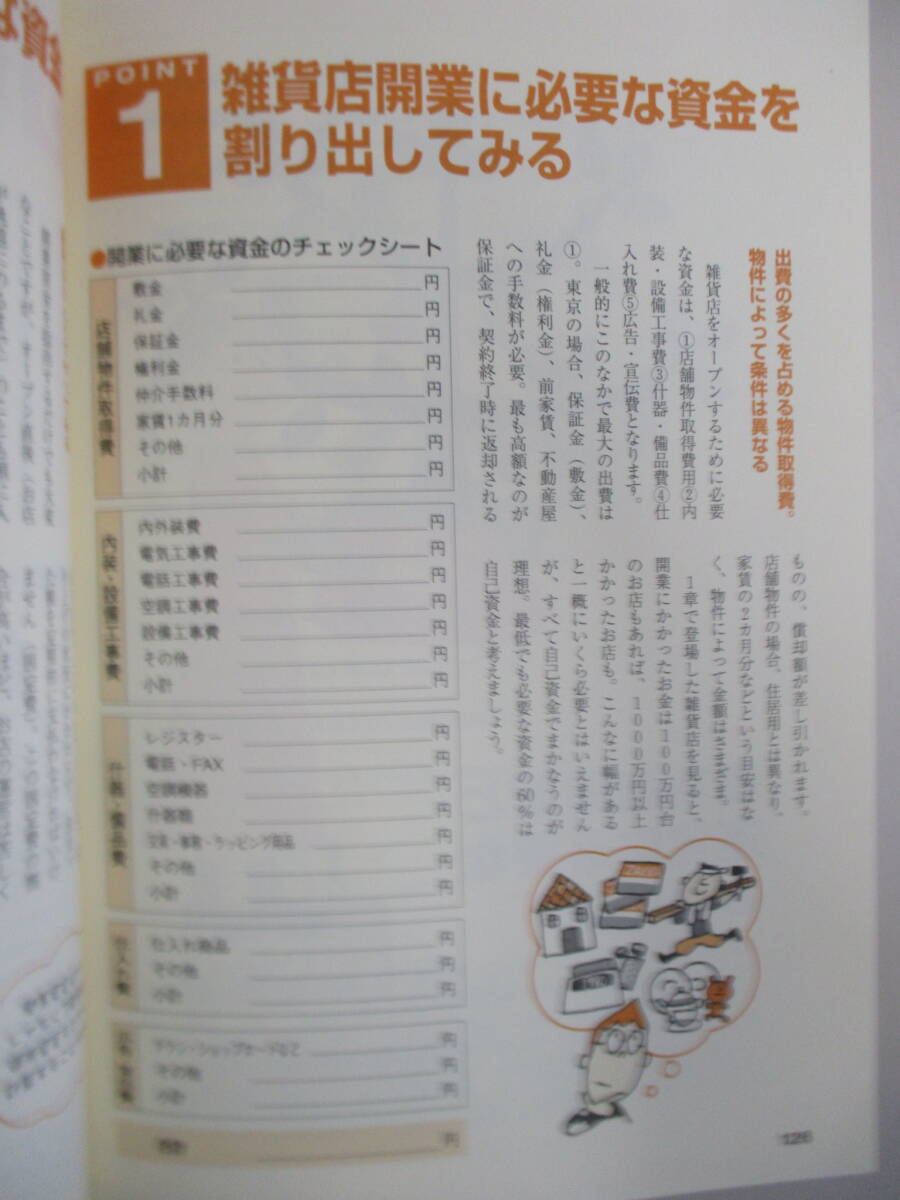 POINT
1
雑貨店開業に必要な資金を
割り出してみる
出費の多くを占める物件取得費。
物件によって条件は異なる
雑貨店をオープンするために必要
な資金は、①店舗物件取得費用②内
装・設備工事費③什器・備品費④仕
入れ費⑤広告・宣伝費となります。
一般的にこのなかで最大の出費は
①。東京の場合、保証金（敷金）、
礼金（権利金）、前家賃、不動産屋
への手数料が必要。最も高額なのが
保証金で、契約終了時に返却される
ものの、償却額が差し引かれます。
店舗物件の場合、住居用とは異なり、
家賃の2カ月分などという目安はな
く、物件によって金額はさまざま。
1章で登場した雑貨店を見ると、
開業にかかったお金は100万円台
のお店もあれば、1000万円以上
かかったお店も。こんなに幅がある
と一概にいくら必要とはいえません
が、すべて自己資金でまかなうのが
理想。最低でも必要な資金の60％は
自己資金と考えましょう。
●開業に必要な資金のチェックシート
店舗物件取得費
敷金 円
礼金 円
保証金 円
権利金 円
仲介手数料 円
家賃1カ月分 円
その他 円
小計 円
内装・設備工事費
内外装費 円
電気工事費 円
電話工事費 円
空調工事費 円
設備工事費 円
その他 円
小計 円
什器・備品費
レジスター 円
電話・FAX 円
空調機器 円
什器類 円
文具・事務・ラッピング用品 円
その他 円
小計 円
仕入れ費
仕入れ商品 円
その他 円
小計 円
チラシ・ショップカードなど 円
その他 円
小計 円
円
126